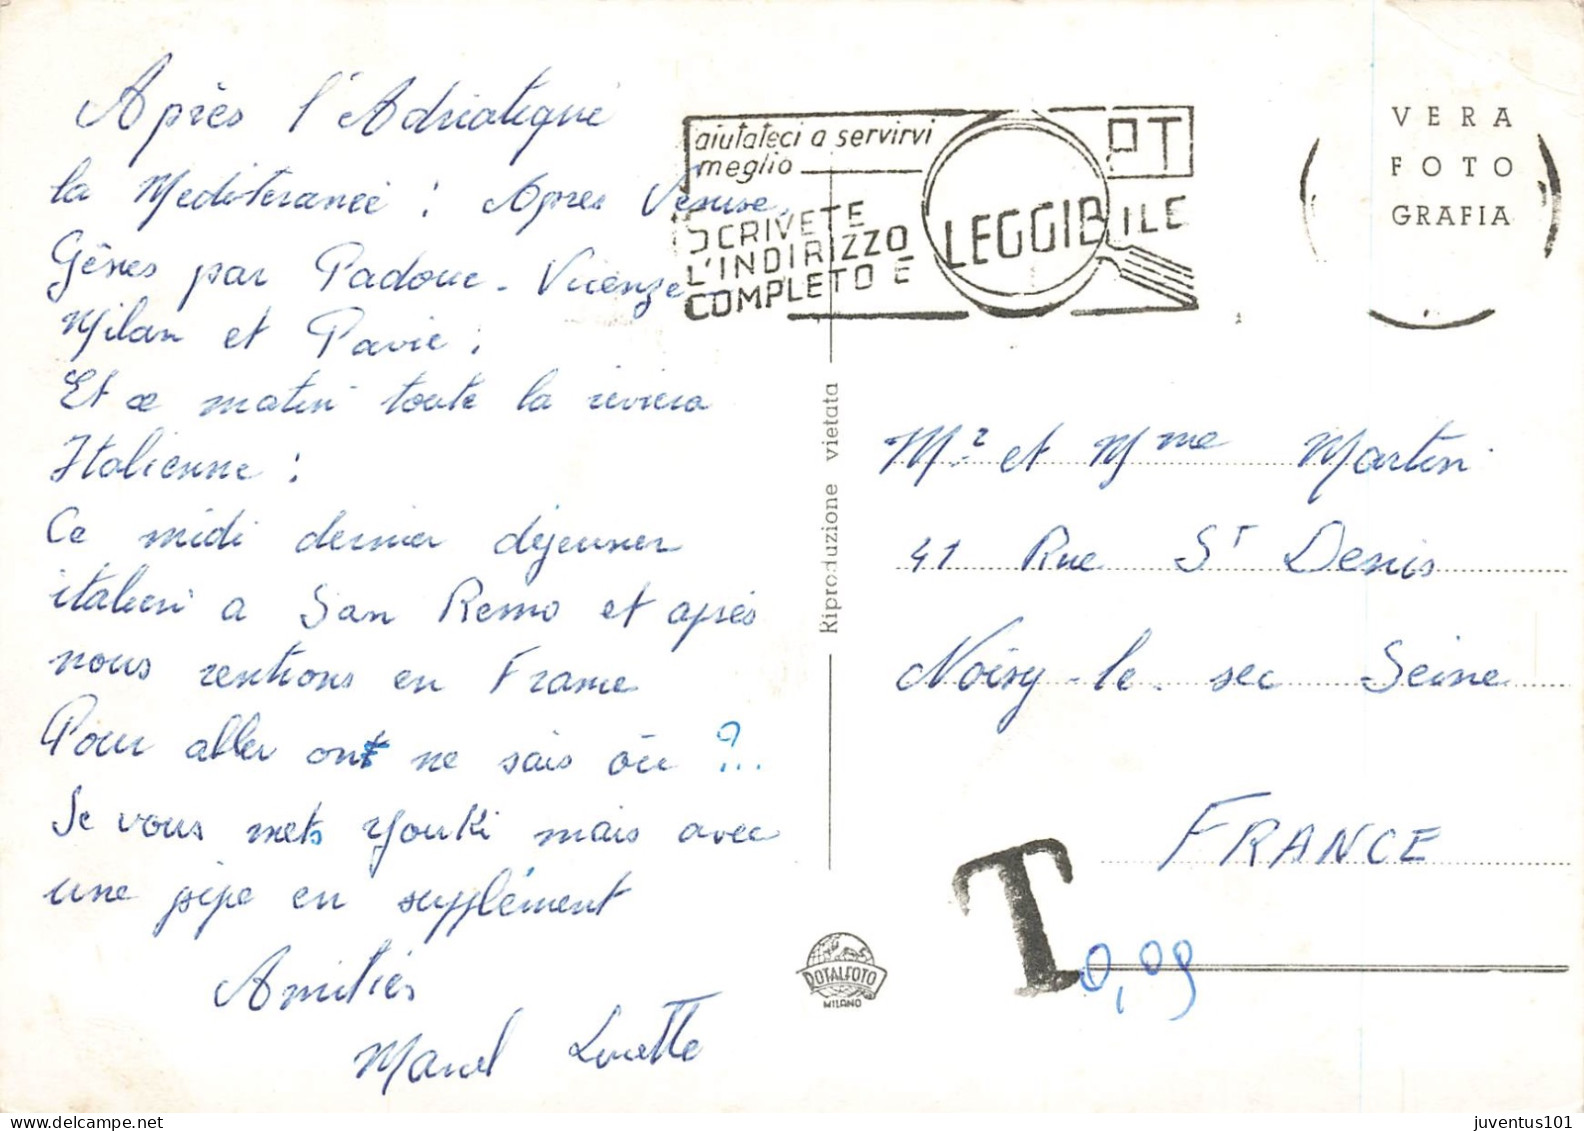 Après l'Adriatique
la Mediteranée : Apres Venise,
Gênes par Padoue - Vicenze -
Milan et Pavie ;
Et ce matin toute la riviera
Italienne :
Ce midi dernier déjeuner
italien a San Remo et après
nous rentrons en France
Pour aller ont ne sais où ?...
Je vous mets Youki mais avec
une pipe en supplément
Amitiés
Marcel Lucette
aiutateci a servirvi
meglio
PT
SCRIVETE
L'INDIRIZZO
COMPLETO E LEGGIBILE
VERA
FOTO
GRAFIA
Riproduzione vietata
Mr et Mme Martin
41 Rue St Denis
Noisy-le-sec Seine
FRANCE
T 0,09
ROTALFOTO
MILANO
delcampe.net
juventus101